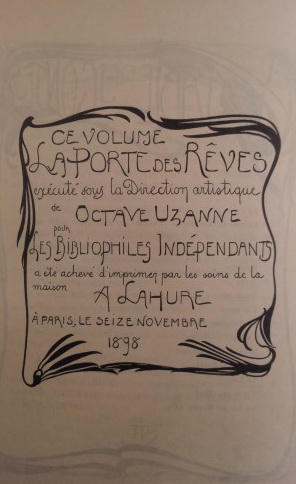 CE VOLUME
LA PORTE DES RÊVES
exécuté sous la Direction artistique
de OCTAVE UZANNE
pour
LES BIBLIOPHILES INDÉPENDANTS
a été achevé d'imprimer par les soins de la
maison
A LAHURE
À PARIS, LE SEIZE NOVEMBRE
1898